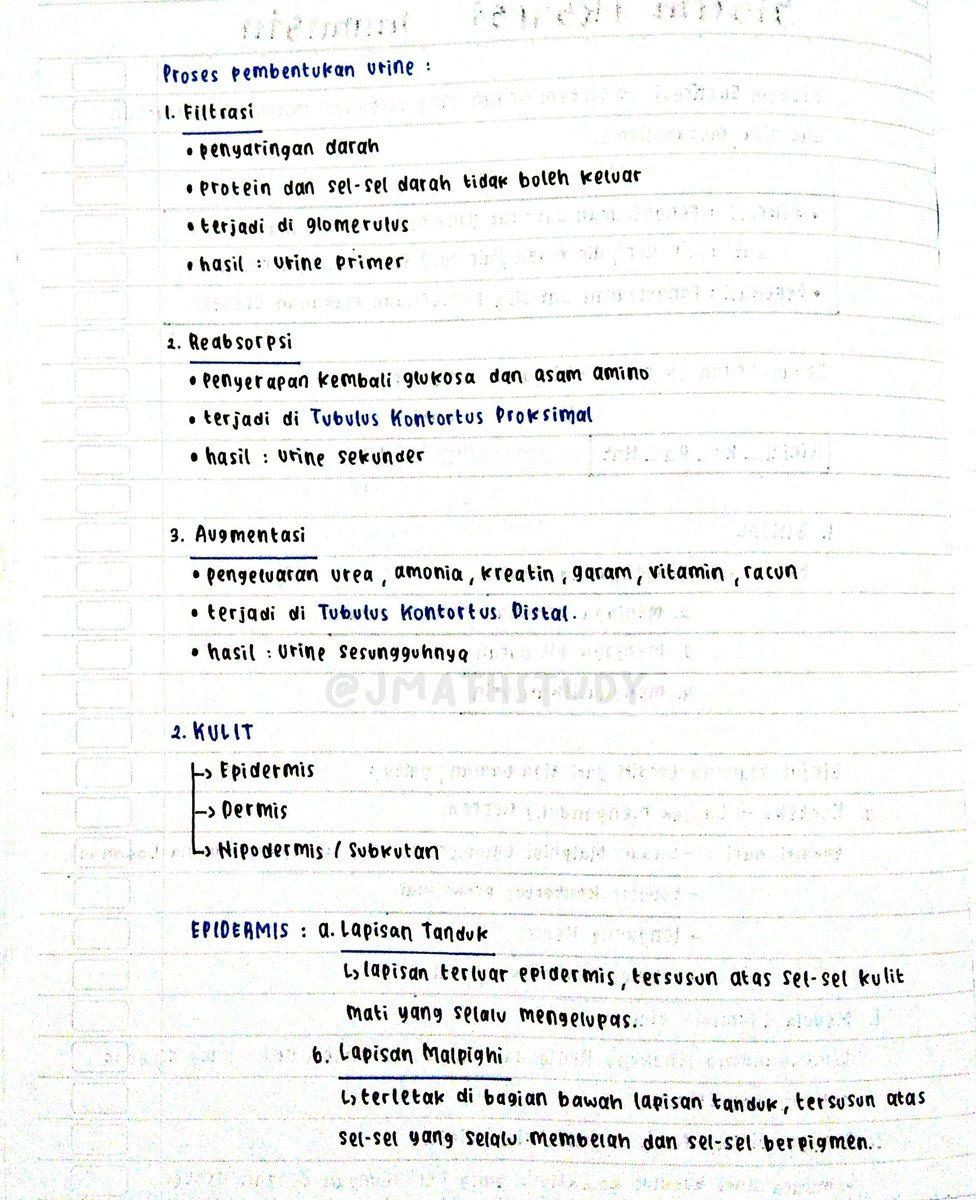 Proses pembentukan urine :
1. Filtrasi
• penyaringan darah
• protein dan sel-sel darah tidak boleh keluar
• terjadi di glomerulus
• hasil : urine primer
2. Reabsorpsi
• penyerapan kembali glukosa dan asam amino
• terjadi di Tubulus Kontortus Proksimal
• hasil : urine sekunder
3. Augmentasi
• pengeluaran urea, amonia, kreatin, garam, vitamin, racun
• terjadi di Tubulus Kontortus Distal.
• hasil : urine sesungguhnya
@JMATHSTUDY
2. KULIT
→ Epidermis
→ Dermis
→ Hipodermis / Subkutan
EPIDERMIS : a. Lapisan Tanduk
↳ lapisan terluar epidermis, tersusun atas sel-sel kulit
mati yang selalu mengelupas.
b. Lapisan Malpighi
↳ terletak di bagian bawah lapisan tanduk, tersusun atas
sel-sel yang selalu membelah dan sel-sel berpigmen.